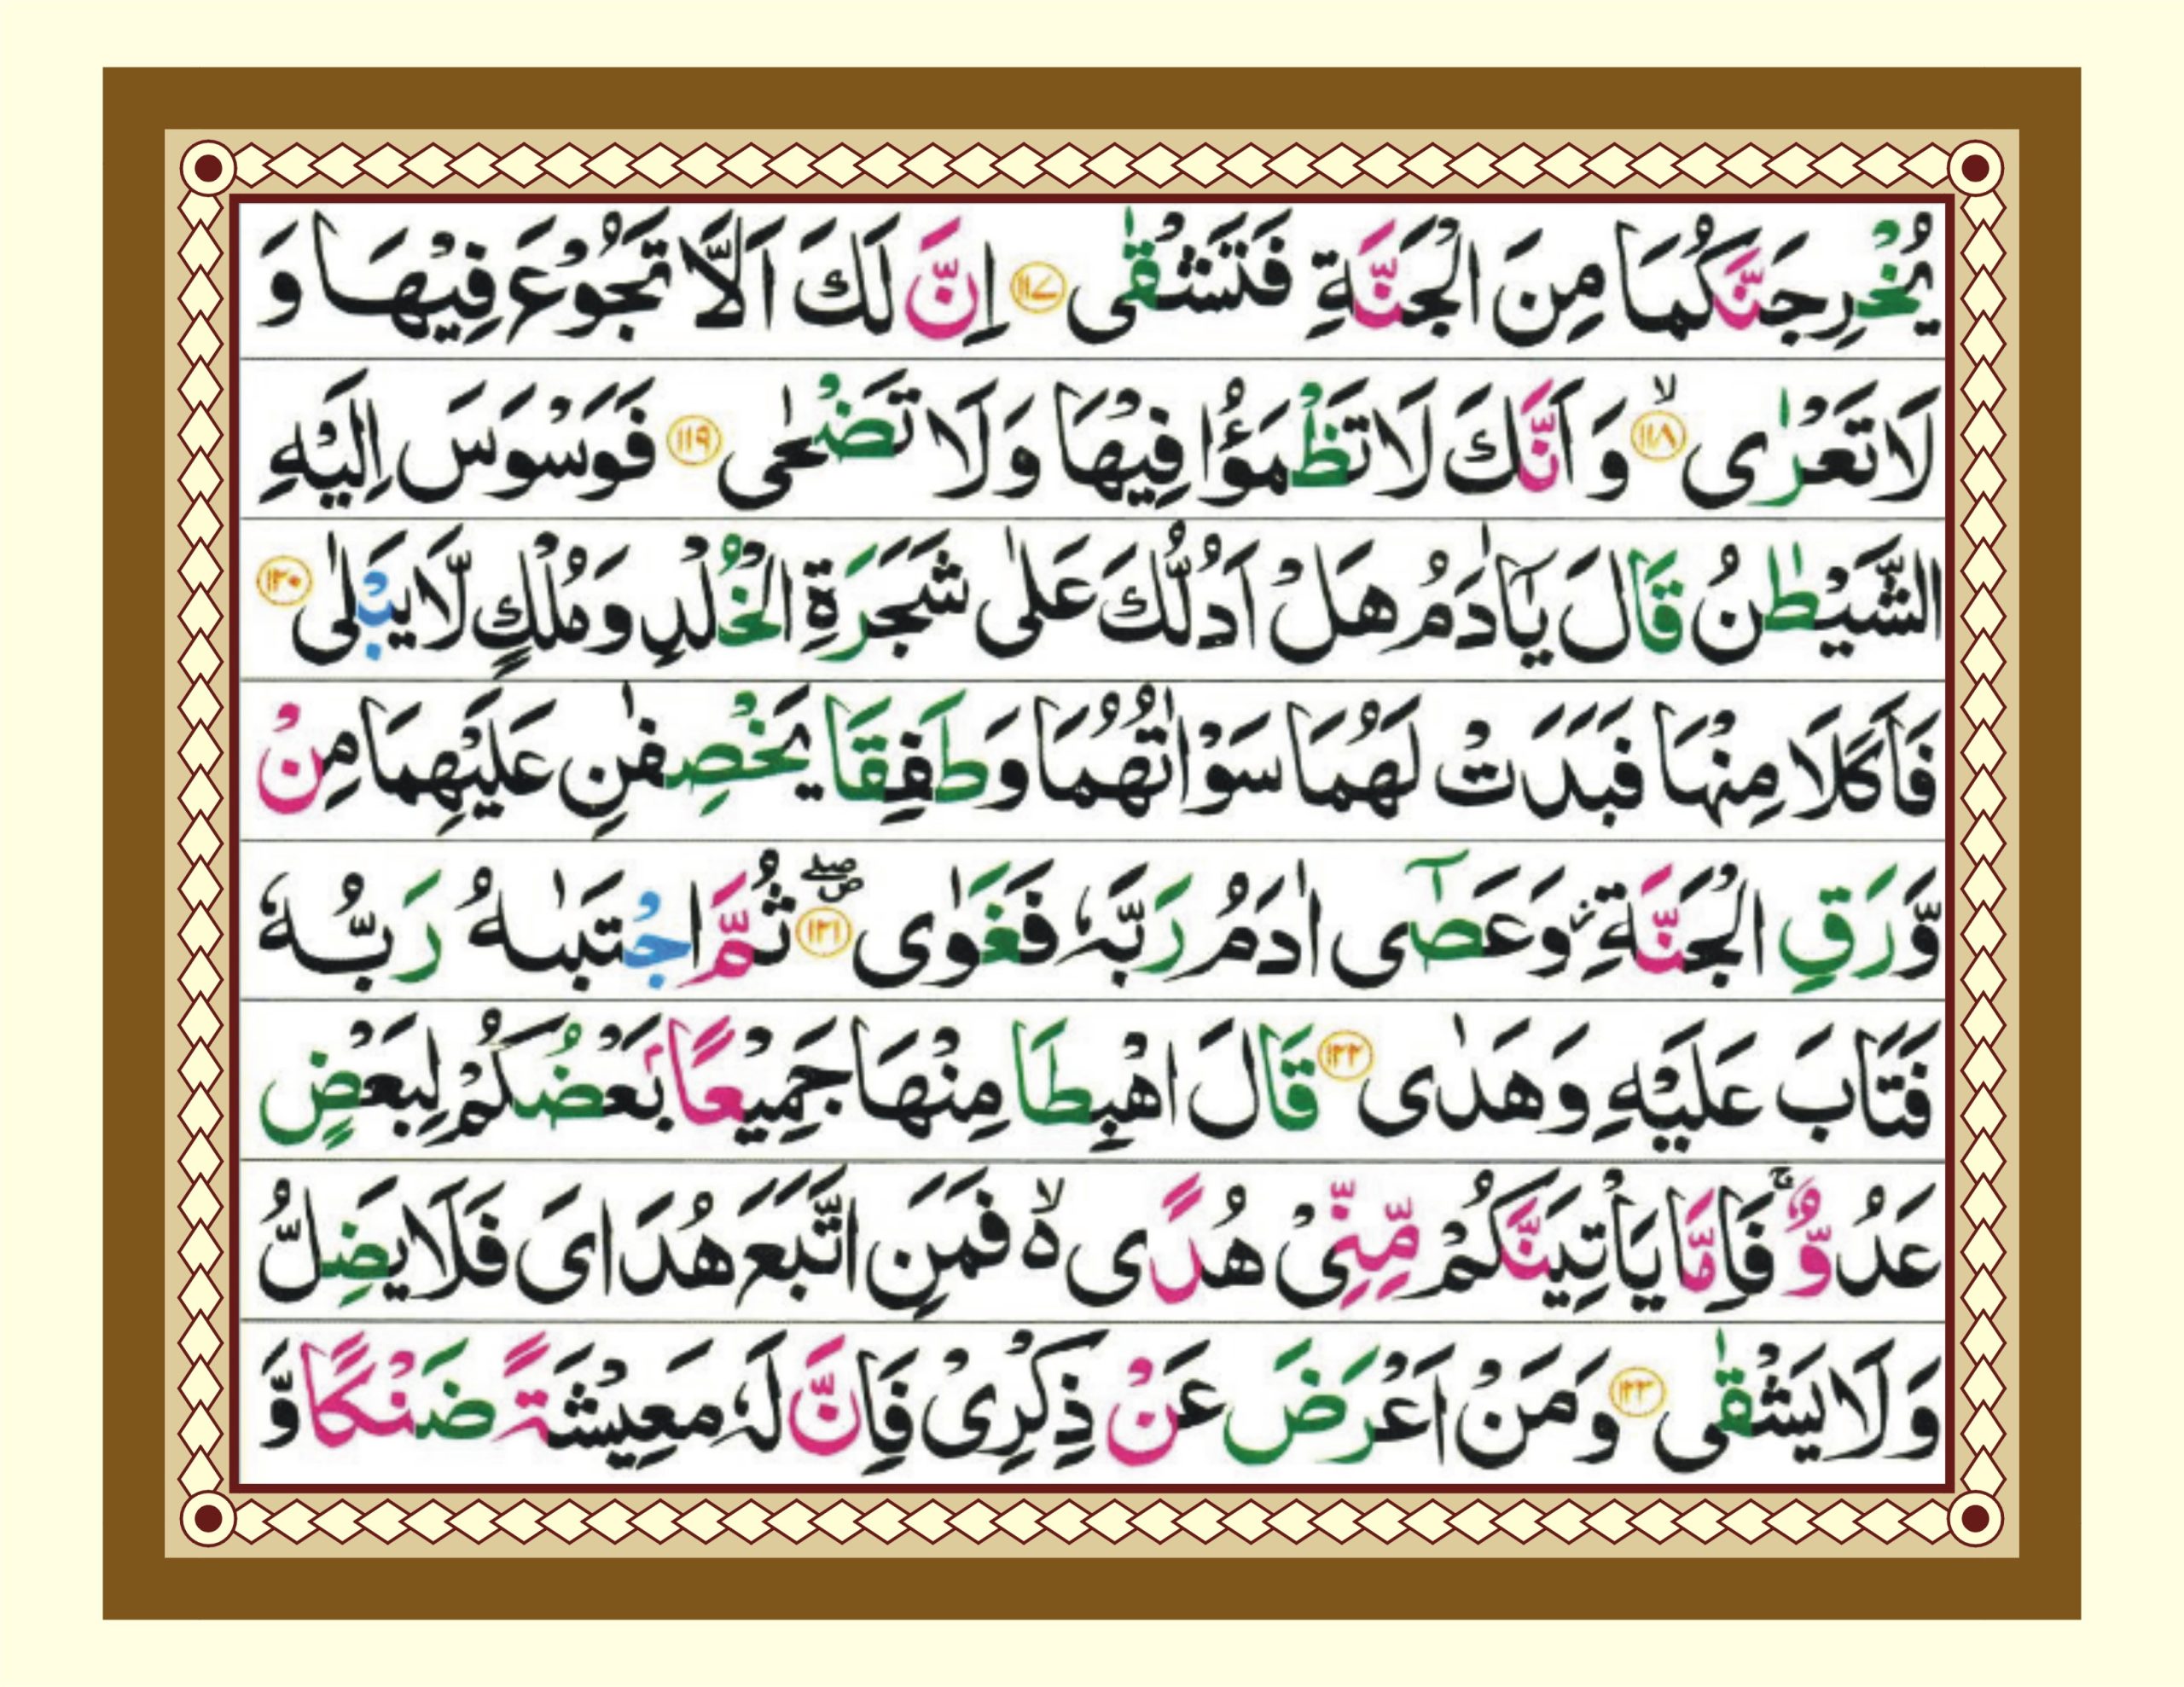 يُخْرِجَنَّكُمَا مِنَ الْجَنَّةِ فَتَشْقٰى ﴿۱۱۷﴾ اِنَّ لَكَ اَلَّا تَجُوْعَ فِيْهَا وَ
لَا تَعْرٰى ﴿۱۱۸﴾ۙ وَ اَنَّكَ لَا تَظْمَؤُا فِيْهَا وَلَا تَضْحٰى ﴿۱۱۹﴾ فَوَسْوَسَ اِلَيْهِ
الشَّيْطٰنُ قَالَ يٰۤاٰدَمُ هَلْ اَدُلُّكَ عَلٰى شَجَرَةِ الْخُلْدِ وَمُلْكٍ لَّا يَبْلٰى ﴿۱۲۰﴾
فَاَكَلَا مِنْهَا فَبَدَتْ لَهُمَا سَوْاٰتُهُمَا وَطَفِقَا يَخْصِفٰنِ عَلَيْهِمَا مِنْ
وَّرَقِ الْجَنَّةِ ؗ وَعَصٰۤى اٰدَمُ رَبَّهٗ فَغَوٰى ﴿۱۲۱﴾ۖ ثُمَّ اجْتَبٰىهُ رَبُّهٗ
فَتَابَ عَلَيْهِ وَهَدٰى ﴿۱۲۲﴾ قَالَ اهْبِطَا مِنْهَا جَمِيْعًۢا بَعْضُكُمْ لِبَعْضٍ
عَدُوٌّ ۚ فَاِمَّا يَاْتِيَنَّكُمْ مِّنِّيْ هُدًى ەۙ فَمَنِ اتَّبَعَ هُدَاىَ فَلَا يَضِلُّ
وَلَا يَشْقٰى ﴿۱۲۳﴾ وَمَنْ اَعْرَضَ عَنْ ذِكْرِىْ فَاِنَّ لَهٗ مَعِيْشَةً ضَنْكًا وَّ